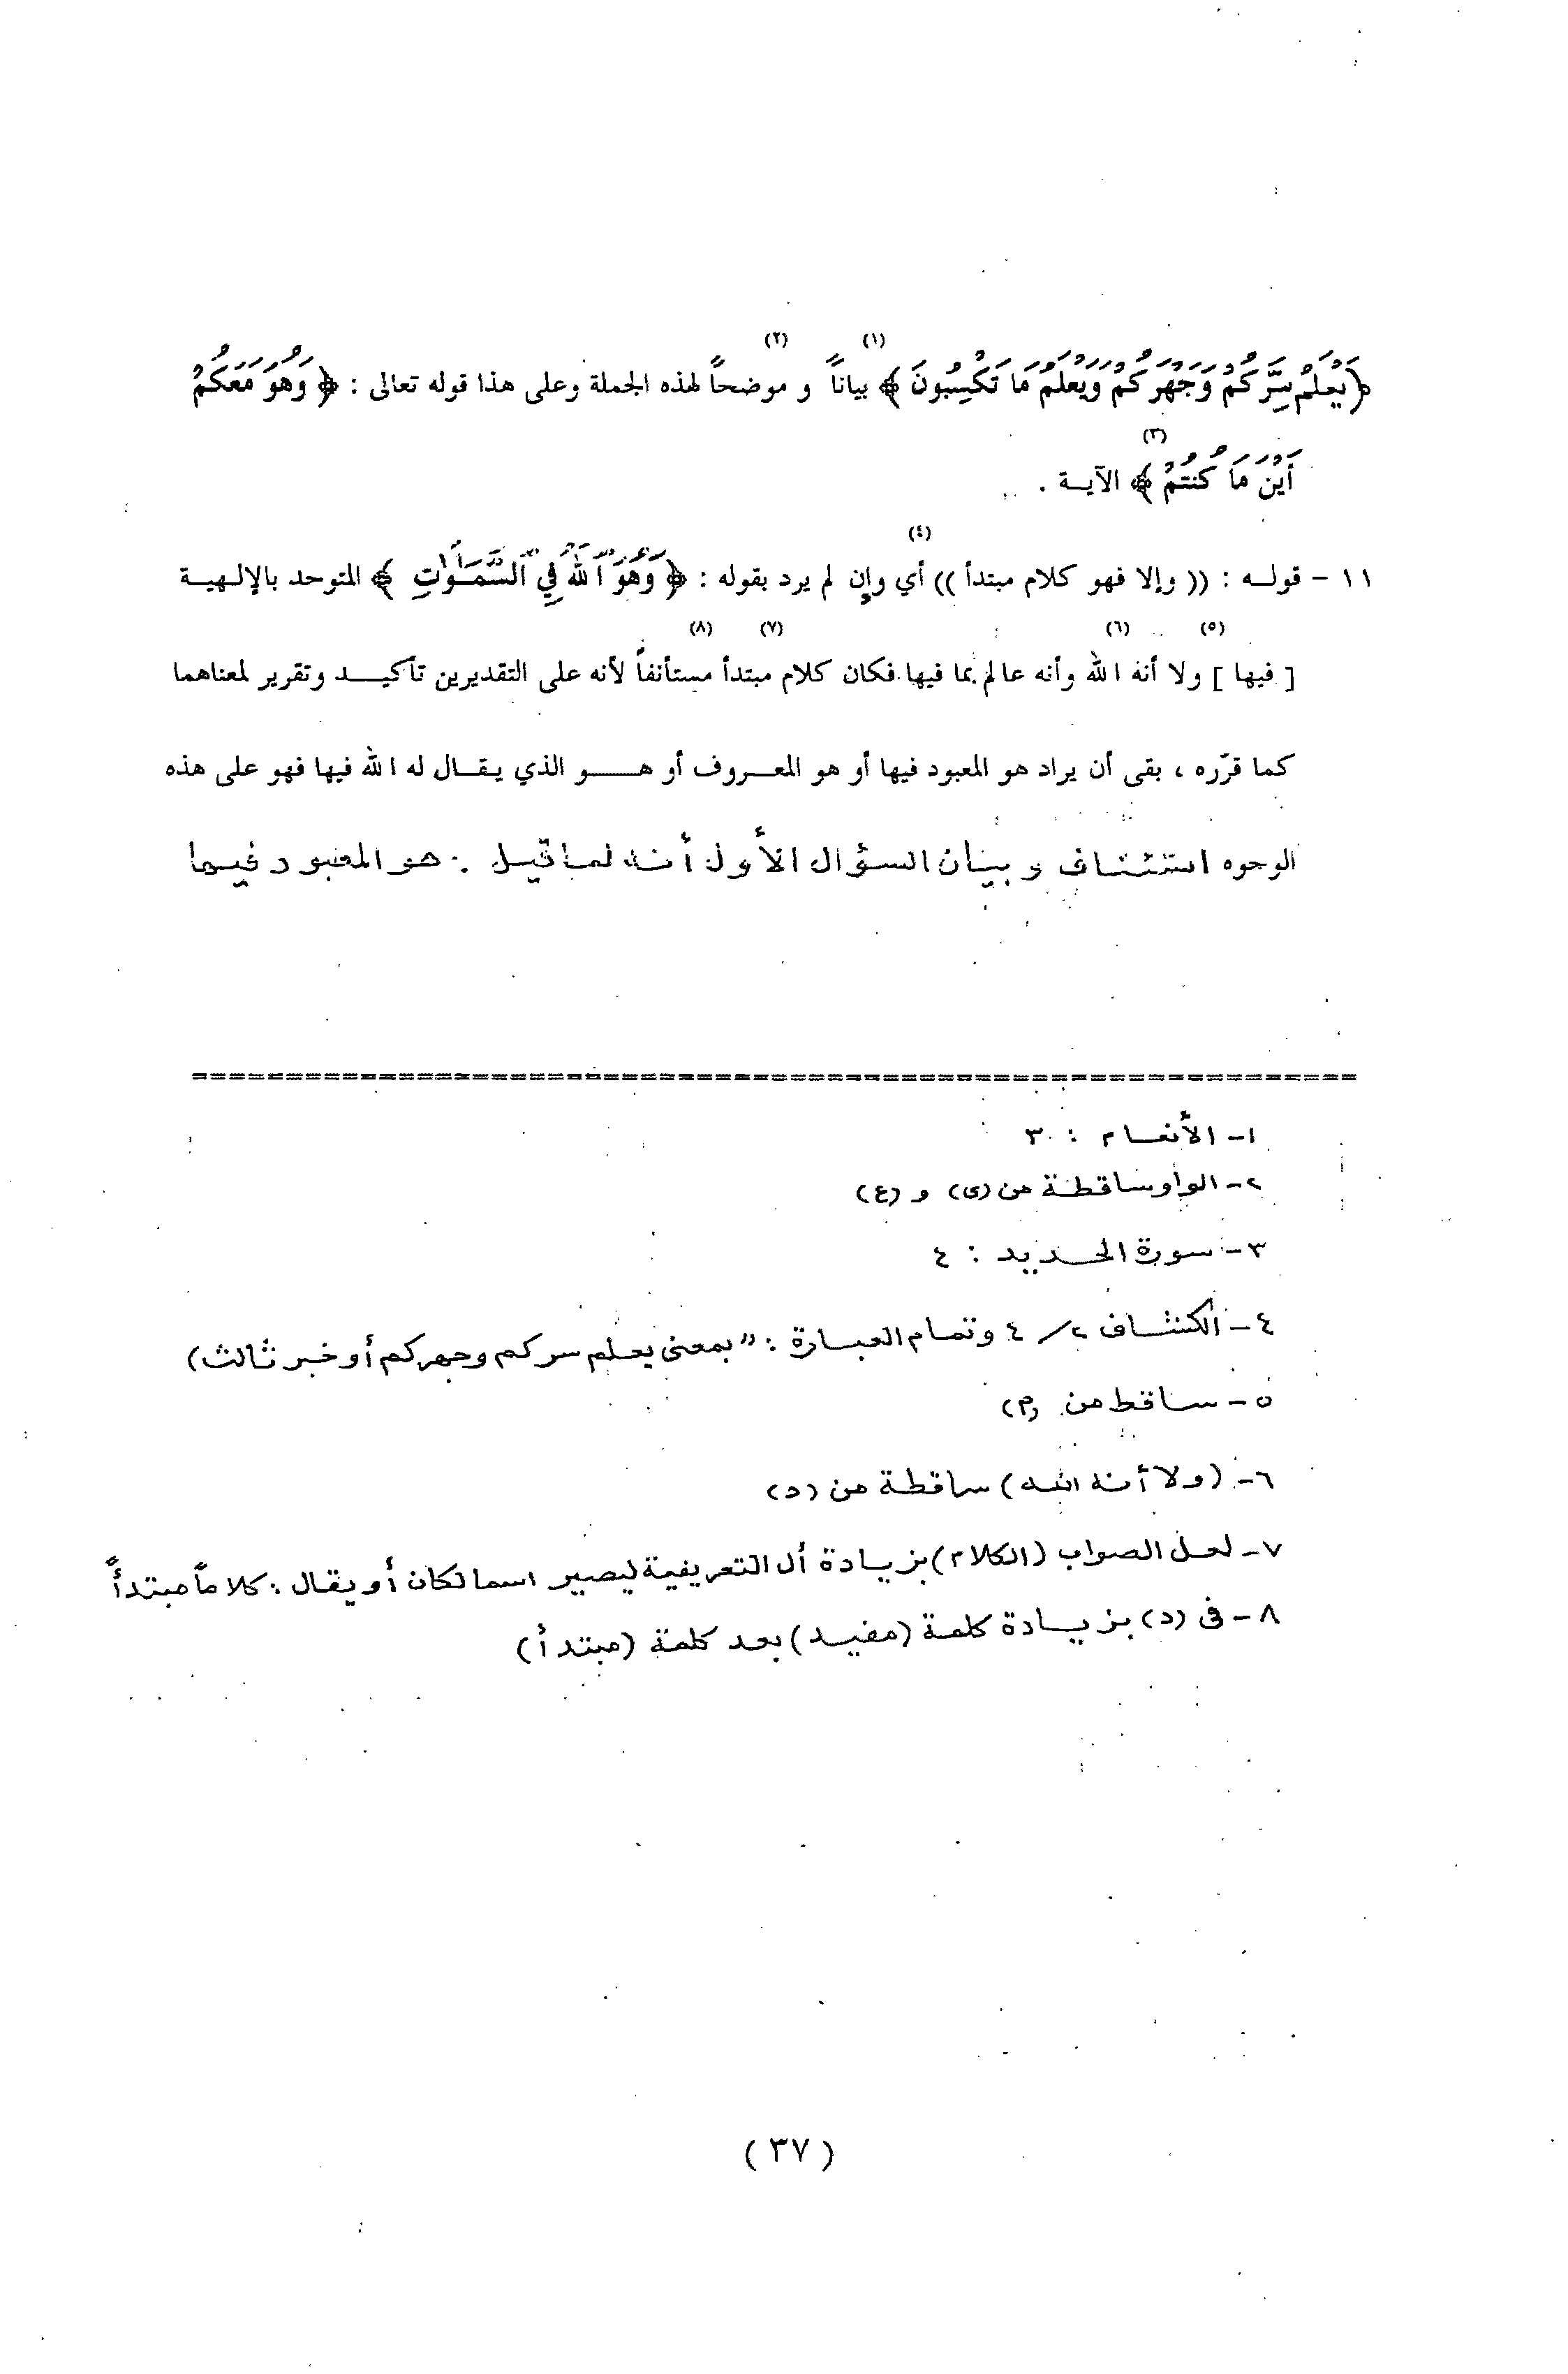 ﴿ يَعْلَمُ سِرَّكُمْ وَجَهْرَكُمْ وَيَعْلَمُ مَا تَكْسِبُونَ ﴾ (١) بياناً (٢) و موضحاً لهذه الجملة وعلى هذا قوله تعالى : ﴿ وَهُوَ مَعَكُمْ
أَيْنَ مَا كُنتُمْ ﴾ (٣) الآيــة .
١١ - قولــه : (( وإلا فهو كلام مبتدأ )) (٤) أي وإن لم يرد بقوله : ﴿ وَهُوَ ٱللَّهُ فِي ٱلسَّمَـٰوَٰتِ ﴾ المتوحد بالإلـهيـة
[ فيها ] (٥) ولا أنه الله (٦) وأنه عالم بما فيها فكان كلام (٧) مبتدأ (٨) مستأنفاً لأنه على التقديرين تأكيــد وتقرير لمعناهما
كما قرّره ، بقى أن يراد هو المعبود فيها أو هو المعـروف أو هــو الذي يـقـال له الله فيها فهو على هذه
الوجوه استئناف و بيان السؤال الأول أنه لما قيل : هو المعبود فيها
١- الأنعام : ٣
٢- الواو ساقطة من (ى) و (ع)
٣- سورة الحديد : ٤
٤- الكشاف ٢/ ٤ وتمام العبارة : " بمعنى يعلم سركم وجهركم أو خبر ثالث)
٥- ساقط من (م)
٦- (ولا أنه الله) ساقطة من (د)
٧- لعل الصواب (الكلام) بزيادة أل التعريفية ليصير اسما لكان أو يقال : كلاماً مبتدأً
٨- فى (د) بزيادة كلمة (مفيد) بعد كلمة (مبتدأ)
( ٣٧ )